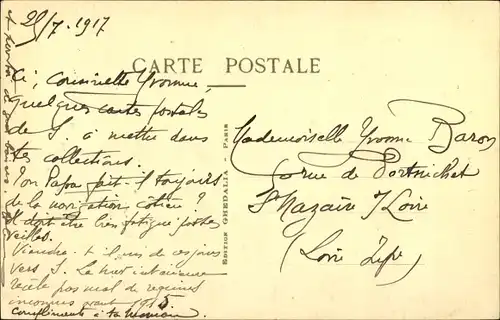 21/7. 1917
CARTE POSTALE
Ci, Cousinette Yvonne,
quelques cartes postales
de S. à mettre dans
tes collections.
Ton Papa fait-il toujours
de la navigation côtière ?
Il doit être bien fatigué
veilles.
Viendra-t-il un de ces jours
vers S. La nuit
recèle pas mal de requins
inconnus avant 1915.
Compliments à ta maman.
EDITION GHEDALIA PARIS
Mademoiselle Yvonne Baron
rue de Pornichet
St Nazaire s/ Loire
(Loire Infre)